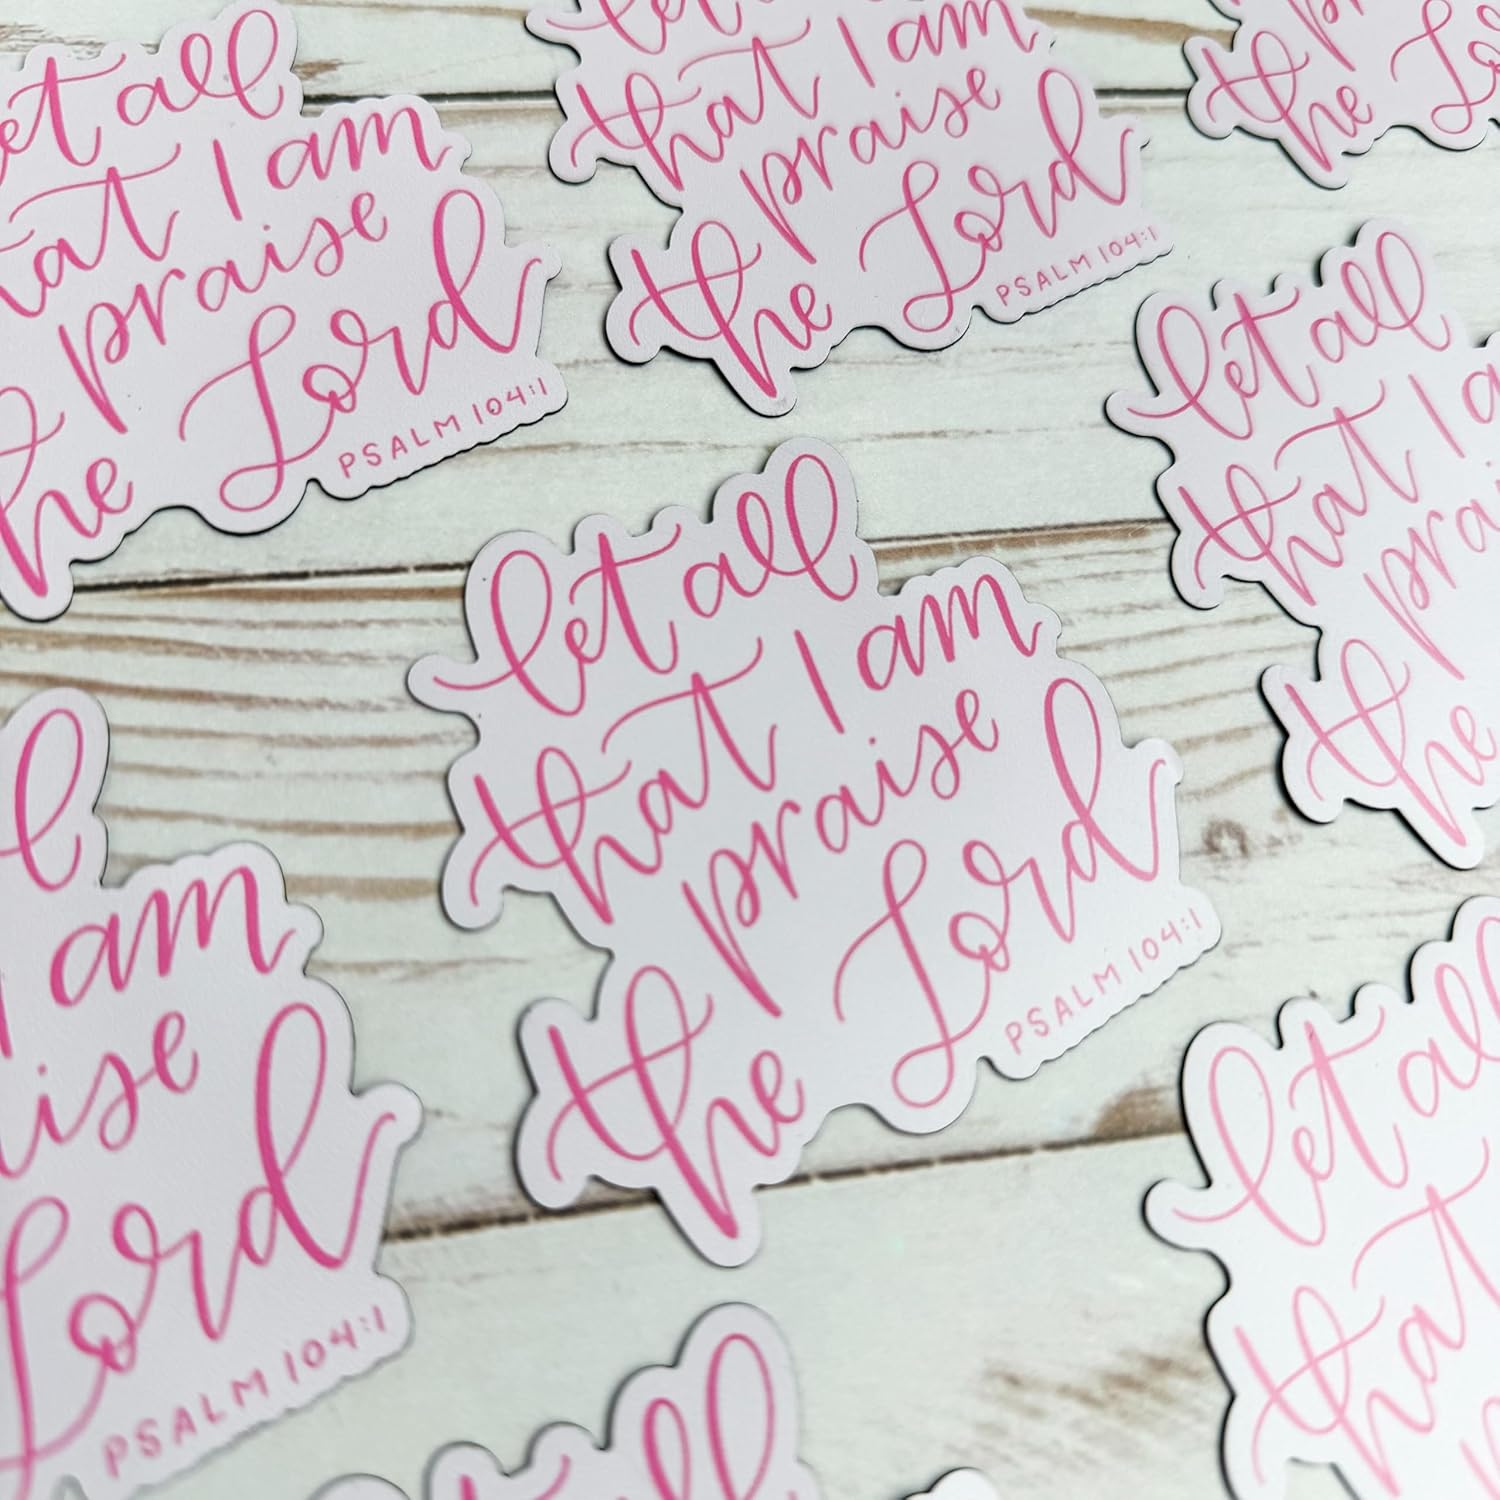 et all
that I am
praise
the Lord
PSALM 104:1
let
that I am
praise
the Lord
PSALM 104:1
the Lo
let all
that I am
praise
the Lord
PSALM 104:1
let all
that I a
prai
the
am
Lord
PSALM 104:1
let al
that